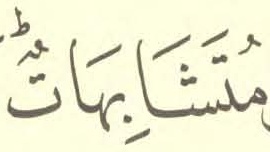 مُتَشَابِهَاتٌ ؕ